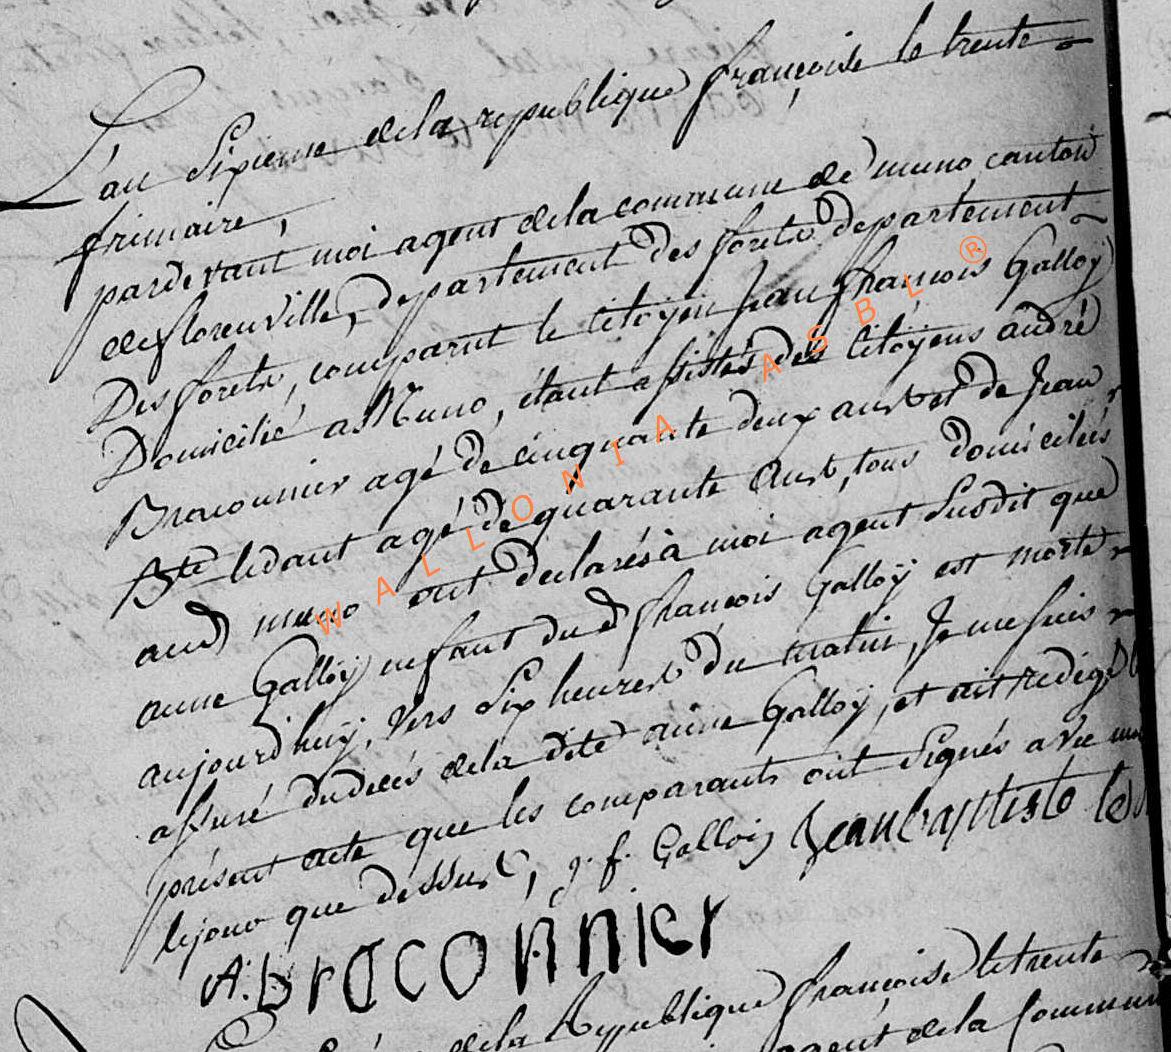 L'an Sixieme de la republique françoise le trente
frimaire,
pardevant moi agent de la commune de muno canton
de florenville, departement des forets departement
Des forets, comparut le citoyen Jean françois Galloÿ
Domicilié a Muno, étant assistés des Citoyens andré
Braconnier agé de cinquante deux ans et de Jean
Bte ledant agé de quarante ans, tous domiciliés
aud muno ont declarés à moi agent Susdit que
anne Galloÿ enfant dud françois Galloÿ est morte
aujourd'huÿ, vers Six heures du matin, Je me suis
assuré du decés de la dite anne Galloÿ, et ait redigé le
présent acte que les comparants ont Signés avec moi
le jour que dessus, j. f. Galloy Jean baptiste
A. braconnier
de la Republique françoise le trente
agent de la Commun
WALLONIA ASBL ®